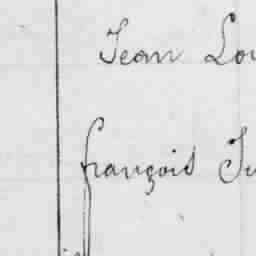 Jean Lou
françois Ju